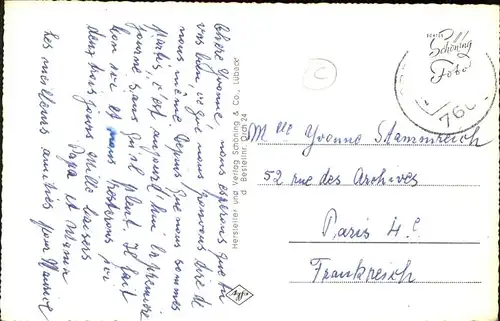 Chère Yvonne, nous espérons que tu
vas bien, ce que nous pouvons dire de
nous même. Depuis que nous sommes
partis, c'est aujourd'hui la première
journée sans qu'il pleut. Il fait
bon ici et nous resterons ici
deux trois jours. Mille baisers
Papa et Maman
Les meilleurs amitiés pour
Hersteller und Verlag Schöning & Co., Lübeck
d Bestellnr. Dlch 24
Agfa
C
ECHTES
Schöning
Foto
Mlle Yvonne Stammreich
52 rue des Archives
Paris 4e
Frankreich